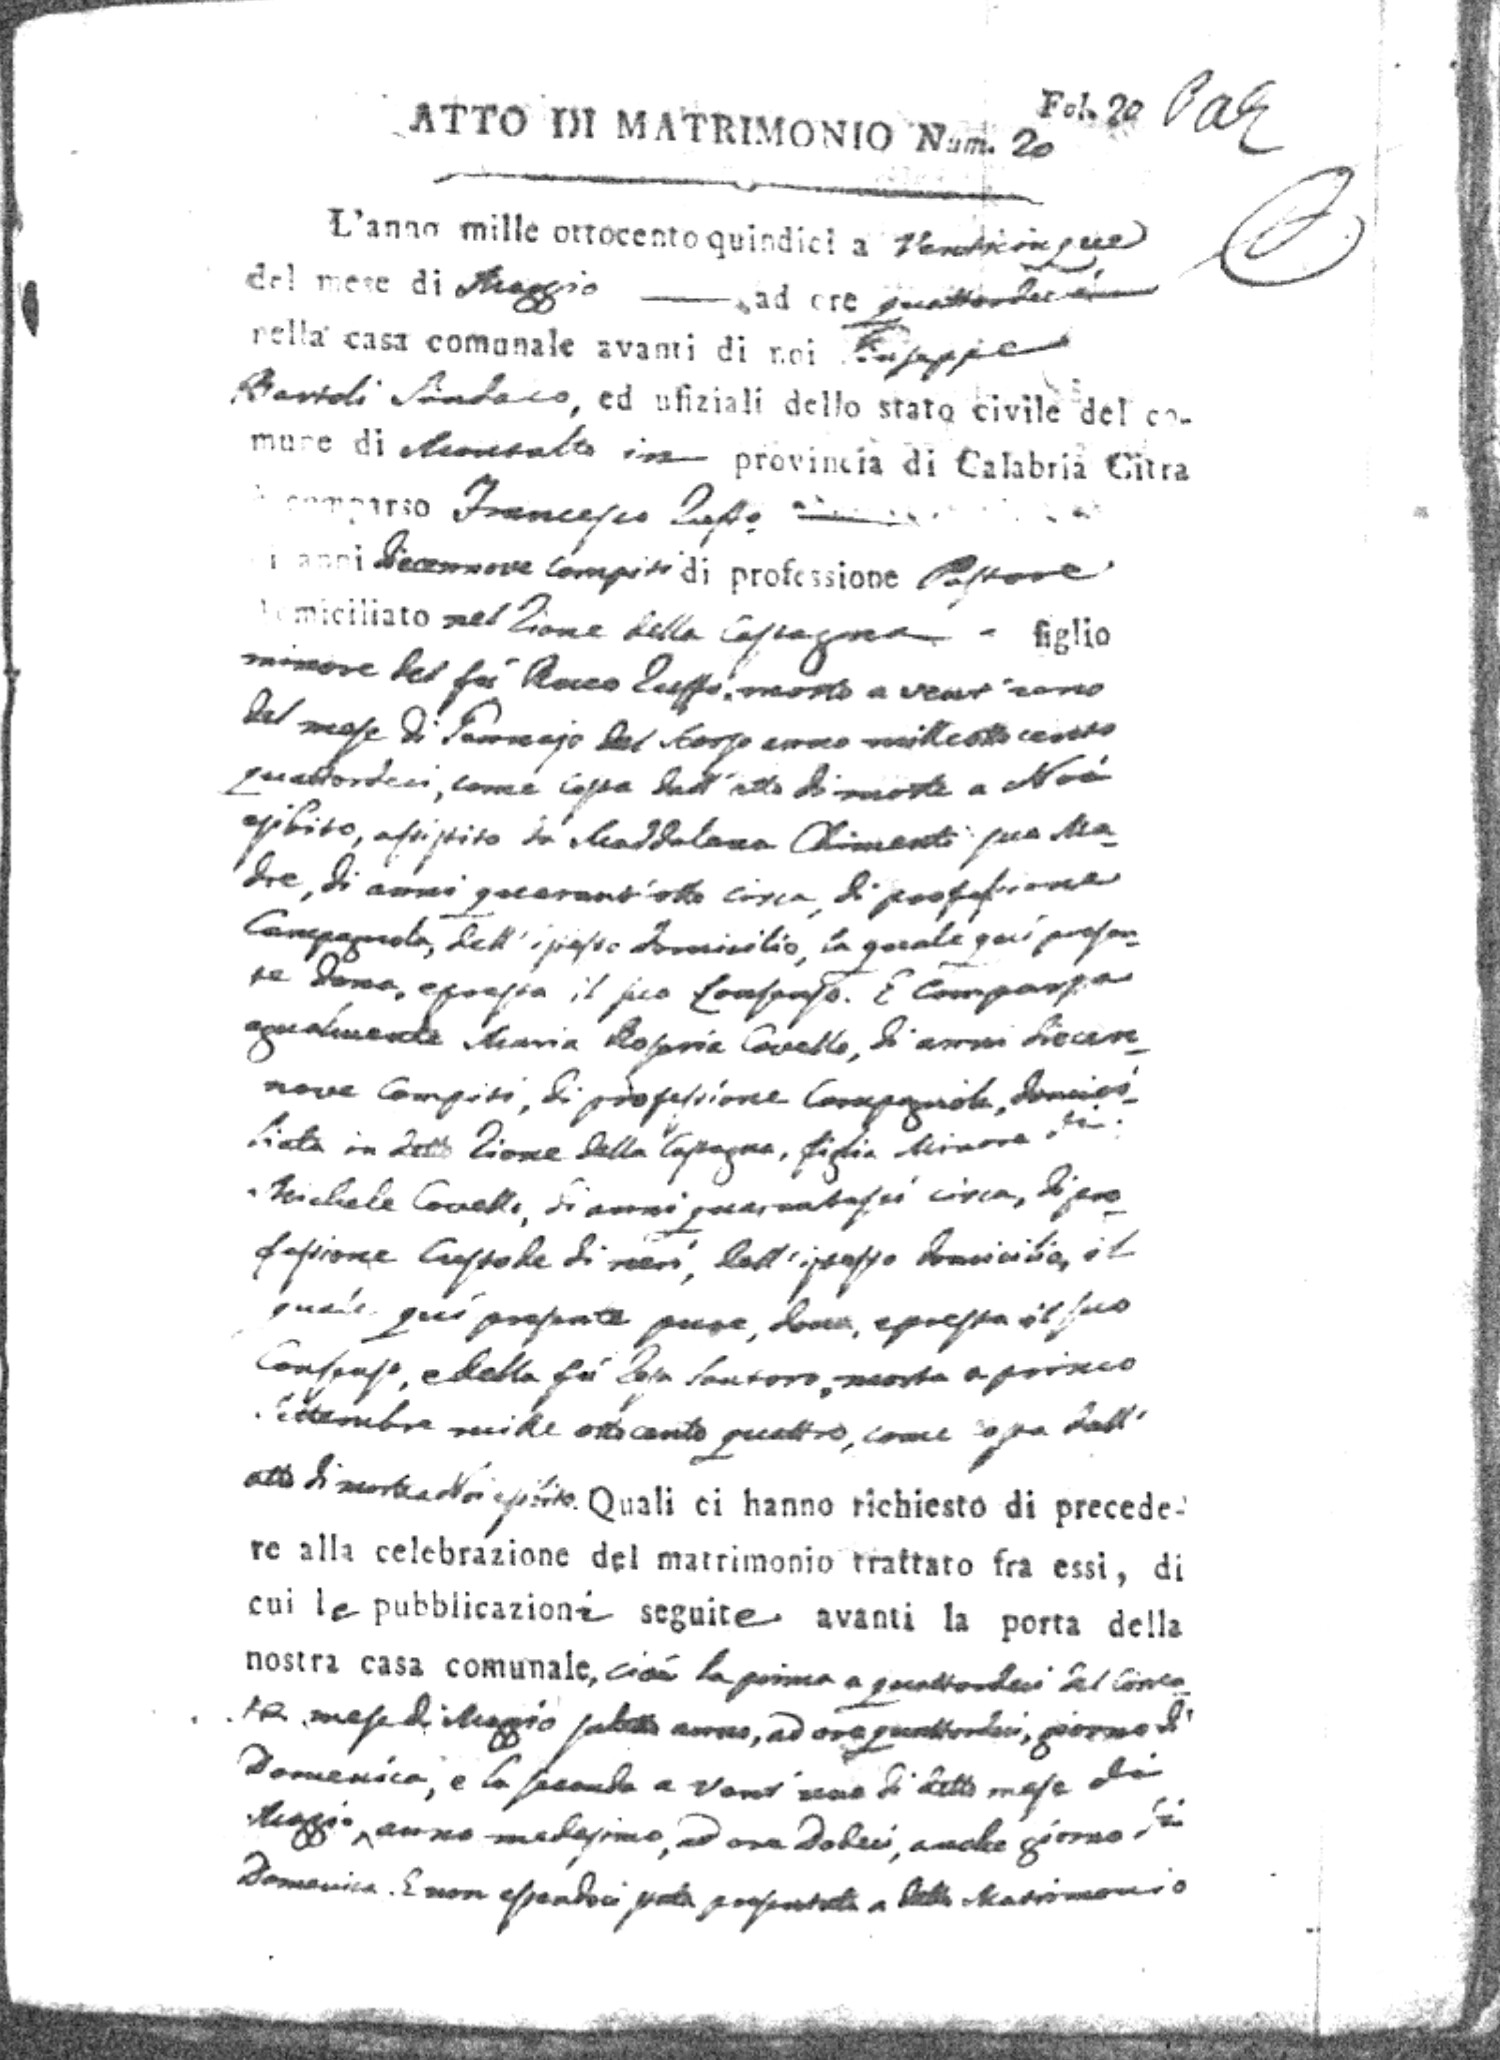 Fol. 20
ATTO DI MATRIMONIO Num. 20
L'anno mille ottocento quindici a Venticinque
del mese di Maggio ad ore quattordeci
nella casa comunale avanti di noi Giuseppe
Bartoli Sindaco, ed ufiziali dello stato civile del co-
mune di Montalto in provincia di Calabria Citra
comparso Francesco Zuffo
di anni diecennove compiti di professione Pastore
domiciliato nel Rione della Castagna figlio
minore del fù Rocco Zuffo, morto a vent'uno
del mese di Gennajo del scorso anno mille ottocento
quattordeci, come costa dall'atto di morte a Noi
esibito, assistito da Maddalena Chimenti sua Ma-
dre, di anni quarant'otto circa, di professione
Campagnola, dell'istesso domicilio, la quale quì presen-
te dona, e presta il suo Consenso. E Comparsa
egualmente Maria Rosaria Covello, di anni diecen-
nove compiti, di professione Campagnola, domici-
liata in detto Rione della Castagna, figlia Minore di
Michele Covello, di anni quarantasei circa, di pro-
fessione Custode di neri, dell'istesso domicilio, il
quale quì presente pure, dona, e presta il suo
Consenso, e della fù Rosa Santoro, morta a primo
Settembre mille ottocento quattro, come costa dall'
atto di morte a Noi esibito. Quali ci hanno richiesto di precede-
re alla celebrazione del matrimonio trattato fra essi, di
cui le pubblicazioni seguite avanti la porta della
nostra casa comunale, cioè la prima a quattordeci del corren-
te mese di Maggio sudetto anno, ad ore quattordeci, giorno di
Domenica, e la seconda a vent'uno di detto mese di
Maggio, anno medesimo, ad ore Dodeci, anche giorno di
Domenica. E non essendoci stata presentata a detto Matrimonio